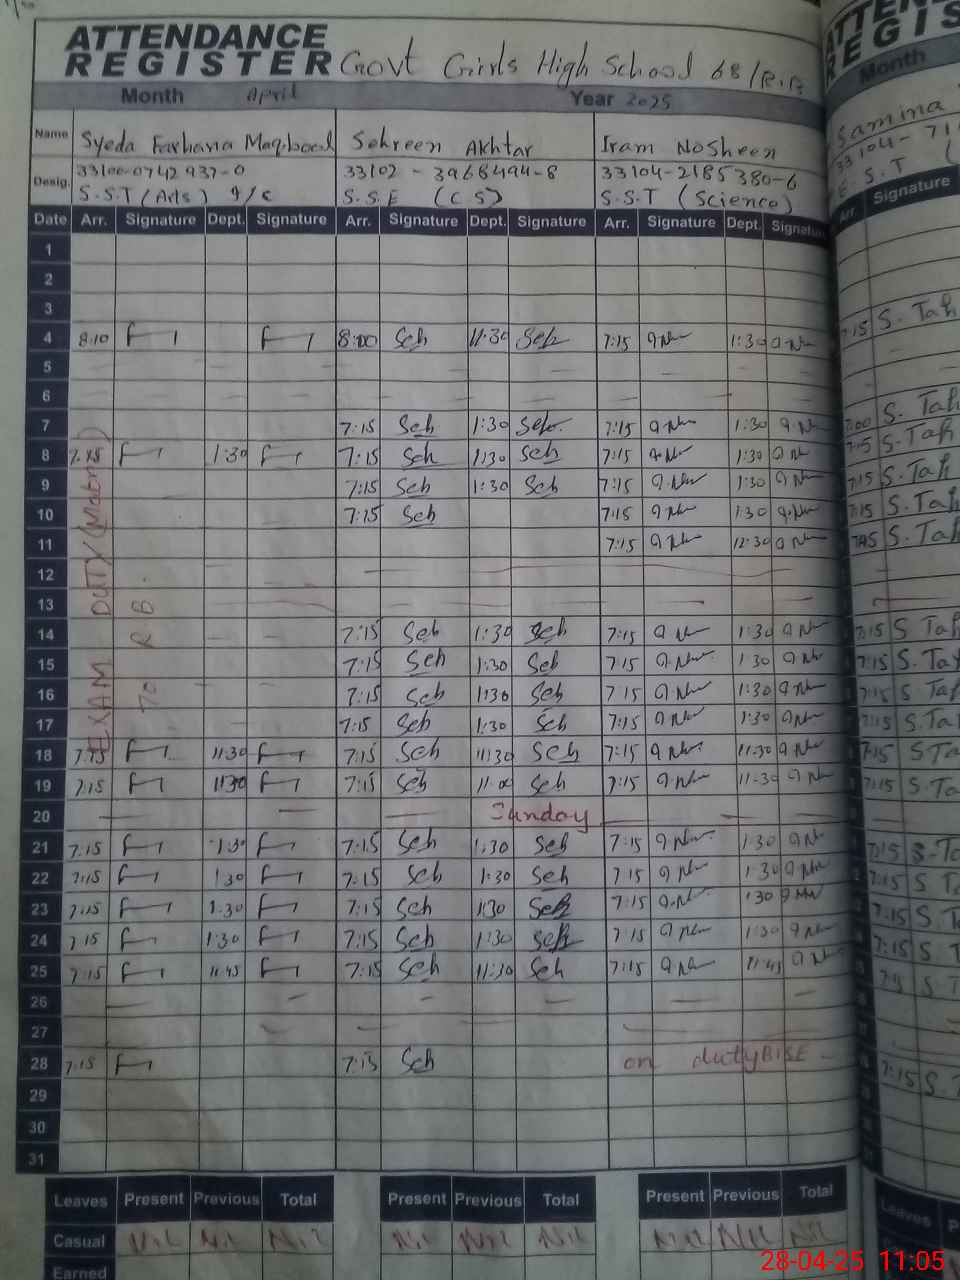 ATTENDANCE REGISTER Govt Girls High School 68/R.B
Month April Year 2025
Name Syeda Farhana Maqbool Sehreen Akhtar Iram Nosheen
Desig. 33100-0742937-0 33102-3968494-8 33104-2185380-6
S.S.T (Arts) I/C S.S.E (CS) S.S.T (Science)
Date Arr. Signature Dept. Signature Arr. Signature Dept. Signature Arr. Signature Dept. Signature
1
2
3
4 8:10 8:00 Seh 11:30 Seh 7:15 1:30
5
6
7 7:15 Seh 1:30 Seh 7:15 1:30
8 7:15 1:30 7:15 Seh 1:30 Seh 7:15 1:30
9 7:15 Seh 1:30 Seh 7:15 1:30
10 7:15 Seh 7:15 1:30
11 7:15 12:30
12
13
14 7:15 Seh 1:30 Seh 7:15 1:30
15 7:15 Seh 1:30 Seh 7:15 1:30
16 7:15 Seh 1:30 Seh 7:15 1:30
17 7:15 Seh 1:30 Seh 7:15 1:30
EXAM DUTY
70 R.B.
18 7:15 11:30 7:15 Seh 11:30 Seh 7:15 11:30
19 7:15 11:30 7:15 Seh 11:00 Seh 7:15 11:30
20 Sunday
21 7:15 1:30 7:15 Seh 1:30 Seh 7:15 1:30
22 7:15 1:30 7:15 Seh 1:30 Seh 7:15 1:30
23 7:15 1:30 7:15 Seh 1:30 Seh 7:15 1:30
24 7:15 1:30 7:15 Seh 1:30 Seh 7:15 1:30
25 7:15 11:45 7:15 Seh 11:30 Seh 7:15 11:45
26
27
28 7:15 7:15 Seh on duty BISE
29
30
31
Leaves Present Previous Total Present Previous Total Present Previous Total
Casual Nil Nil Nil Nil Nil Nil Nil Nil Nil
Earned
ATTEN
REGIS
Month
Samina
33104-71
Arr. Signature
7:15 S. Tah
7:00 S. Tah
7:15 S. Tah
7:15 S. Tah
7:15 S. Tah
S. Tah
7:15 S Tah
7:15 S. Ta
7:15 S Tah
7:15 S.Ta
7:15 S Ta
7:15 S Ta
7:15 S.Ta
7:15 S T
7:15 S.T
7:15 S T
S T
7:15 S.
Leaves
28-04-25 11:05